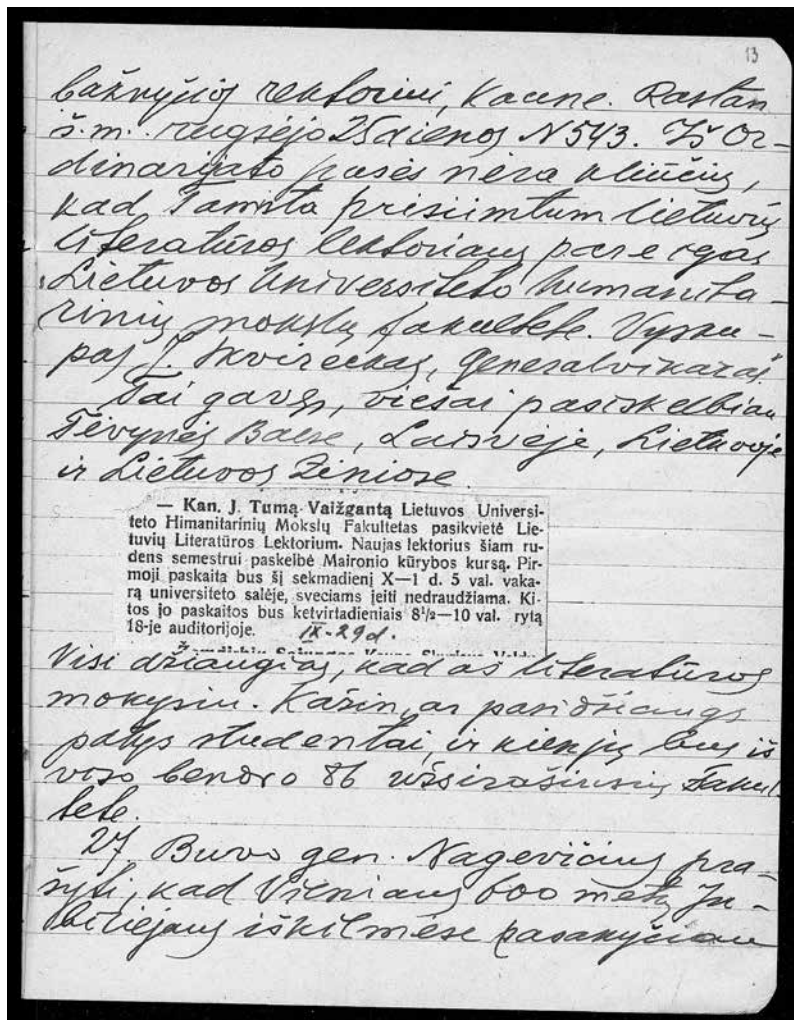 13
bažnyčios rektoriui, Kaune. Raštan
š.m. rugsėjo 25 dienos N 543. Iš Or-
dinarijato pusės nėra kliūčių,
kad Tamsta prisiimtum lietuvių
literatūros lektoriaus pareigas
Lietuvos Universiteto humanita-
rinių mokslų fakultete. Vysku-
pas J. Skvireckas, generalvikaras."
Tai gavęs, viešai pasiskelbiau
Tėvynės Balse, Laisvėje, Lietuvoje
ir Lietuvos Žiniose.
— Kan. J. Tumą Vaižgantą Lietuvos Universi-
teto Himanitarinių Mokslų Fakultetas pasikvietė Lie-
tuvių Literatūros Lektorium. Naujas lektorius šiam ru-
dens semestrui paskelbė Maironio kūrybos kursą. Pir-
moji paskaita bus šį sekmadienį X—1 d. 5 val. vaka-
rą universiteto salėje, sveciams įeiti nedraudžiama. Ki-
tos jo paskaitos bus ketvirtadieniais 8½—10 val. rytą
18-je auditorijoje. IX-29 d.
Visi džiaugias, kad aš literatūros
mokysiu. Kažin, ar pasidžiaugs
patys studentai, ir kiek jų bus iš
viso bendro 86 užsirašiusių Fakul-
tete.
27 Buvo gen. Nagevičius pra-
šyti, kad Vilniaus 600 metų Ju-
biliejaus iškilmėse pasakyčiau